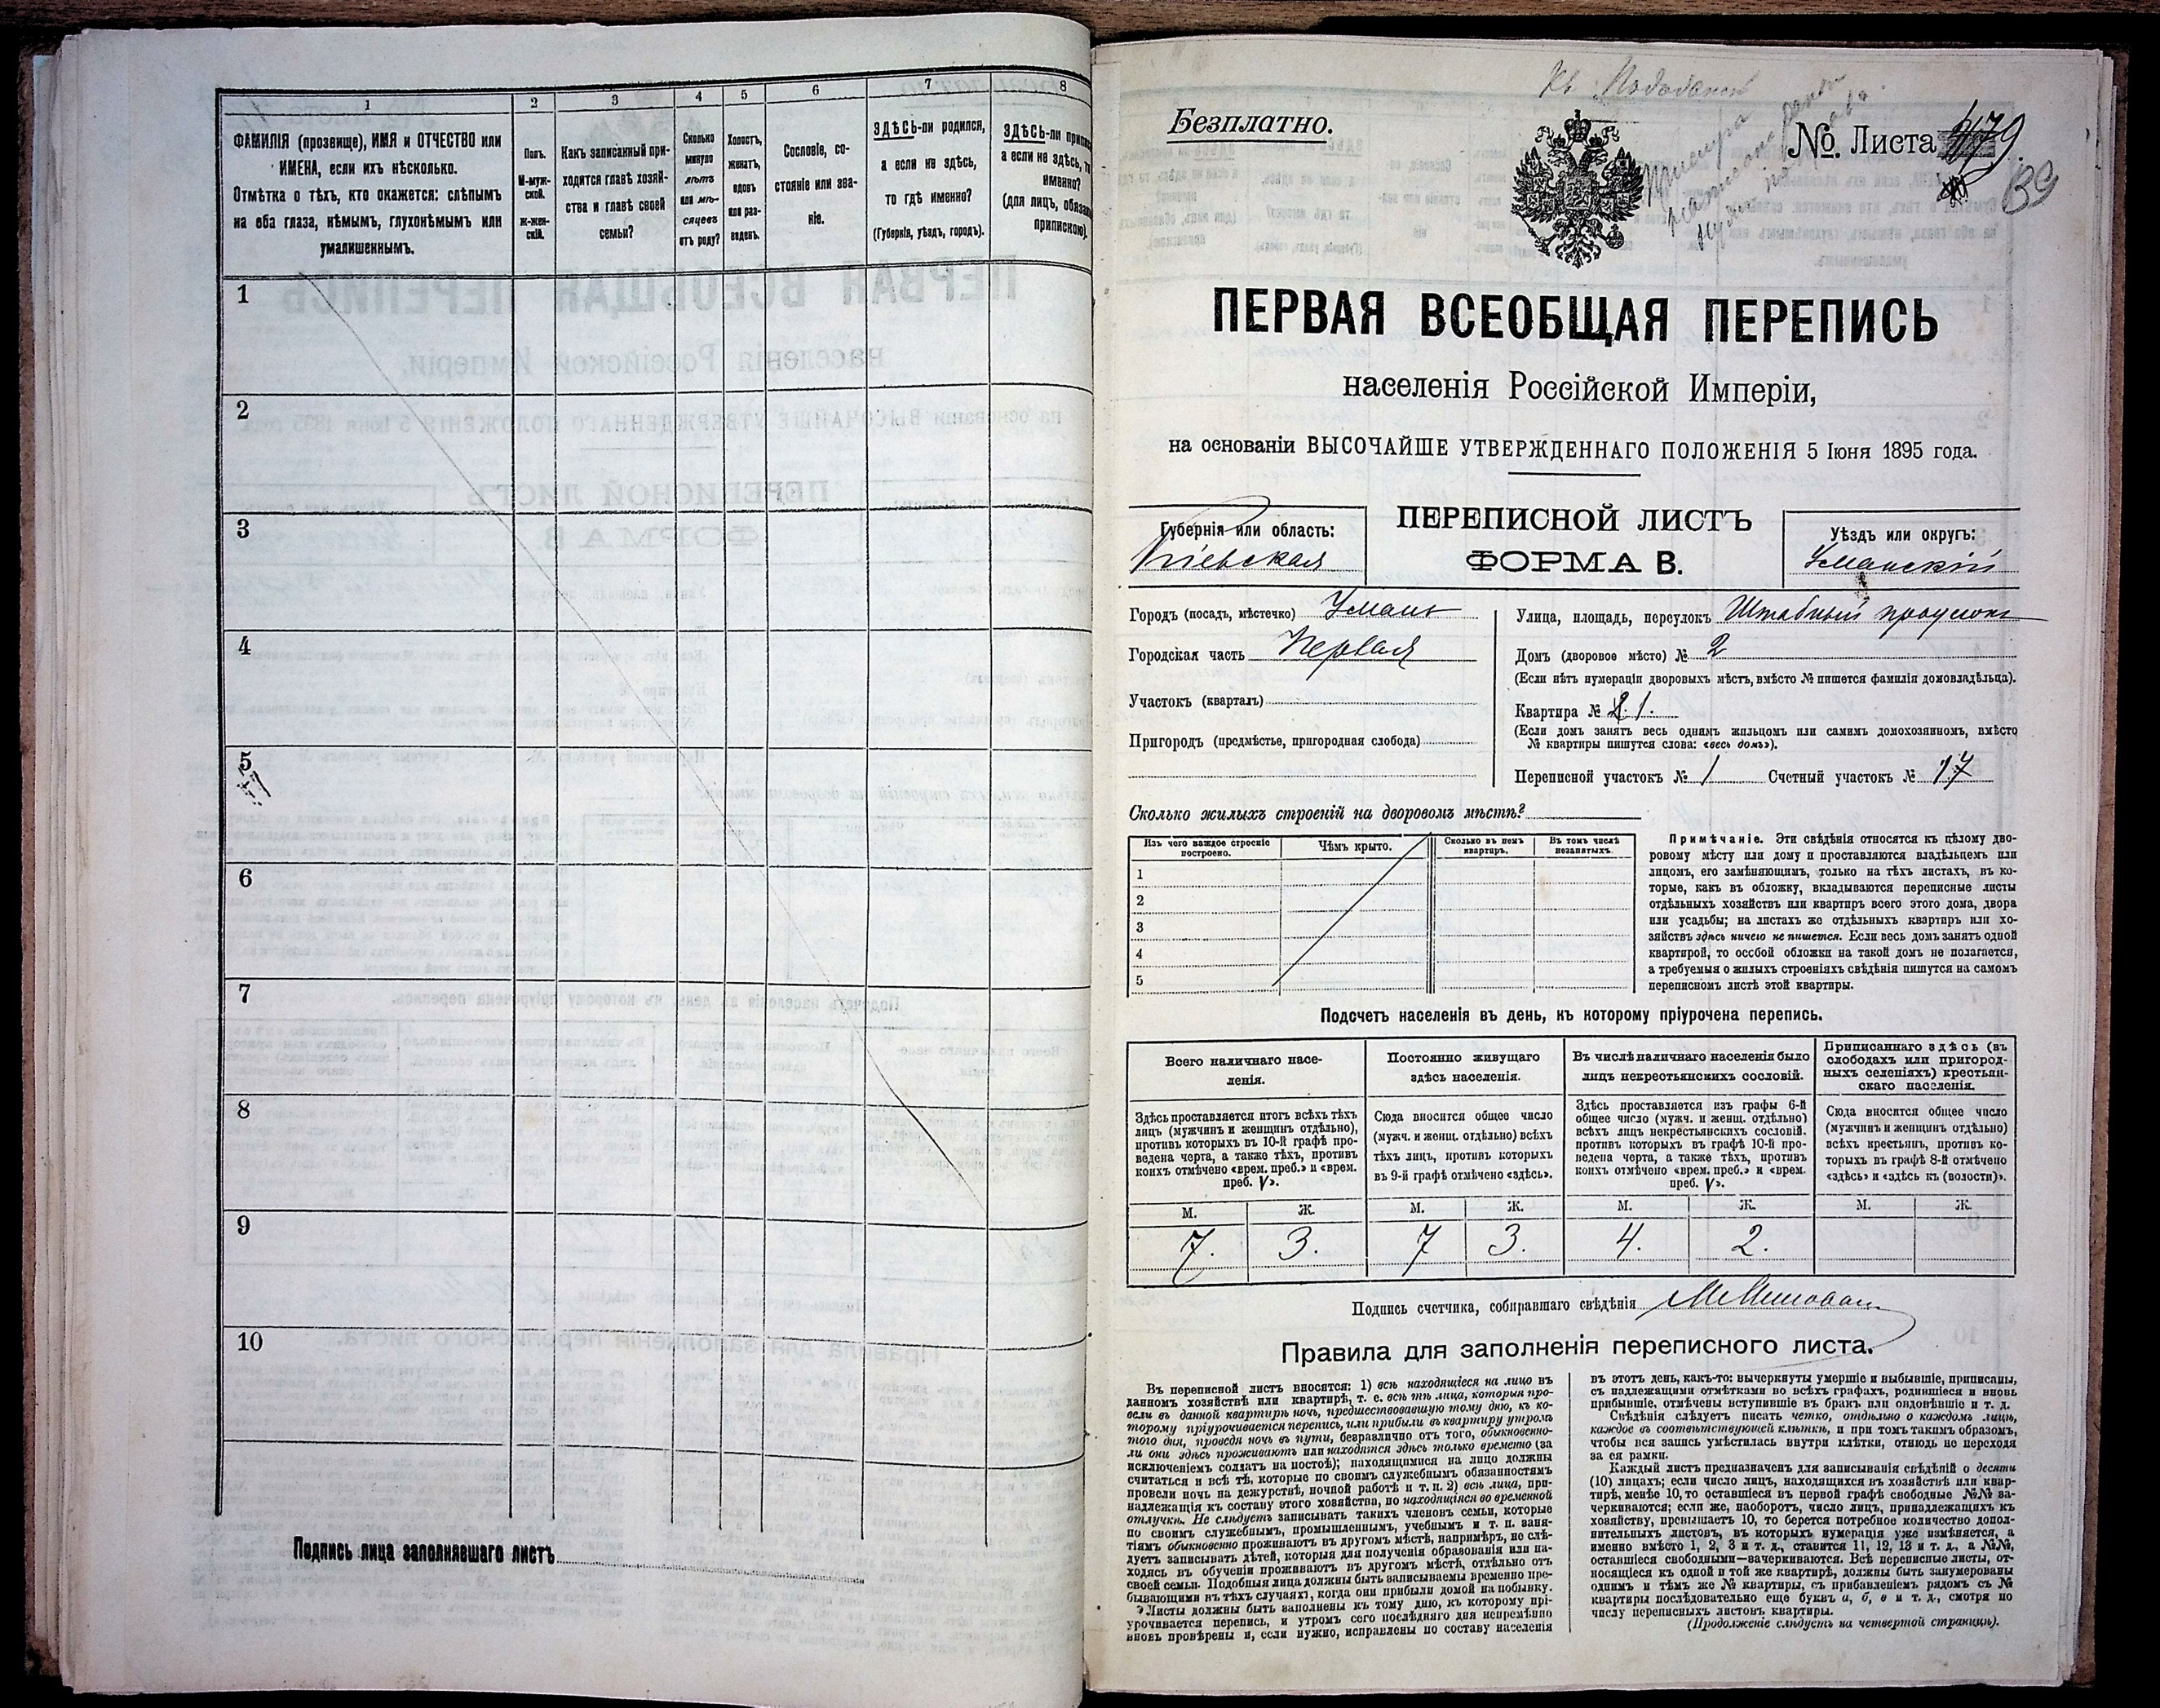 1
2
3
4
5
6
7
8
ФАМИЛІЯ (прозвище), ИМЯ и ОТЧЕСТВО или
ИМЕНА, если ихъ нѣсколько.
Отмѣтка о тѣхъ, кто окажется: слѣпымъ
на оба глаза, нѣмымъ, глухонѣмымъ или
умалишеннымъ.
Полъ.
М-муж-
ской.
Ж-жен-
скій.
Какъ записанный при-
ходится главѣ хозяй-
ства и главѣ своей
семьи?
Сколько
минуло
лѣтъ
или мѣ-
сяцевъ
отъ роду?
Холостъ,
женатъ,
вдовъ
или раз-
веденъ.
Сословіе, со-
стояніе или зва-
ніе.
ЗДѢСЬ-ли родился,
а если не здѣсь,
то гдѣ именно?
(Губернія, уѣздъ, городъ).
ЗДѢСЬ-ли
а если не здѣсь,
именно?
(для лицъ,
припискою).
1
2
3
4
5
6
7
8
9
10
Подпись лица заполнявшаго листъ
Безплатно.
№ Листа 179.
139
ПЕРВАЯ ВСЕОБЩАЯ ПЕРЕПИСЬ
населенія Россійской Имперіи,
на основаніи ВЫСОЧАЙШЕ УТВЕРЖДЕННАГО ПОЛОЖЕНІЯ 5 Іюня 1895 года.
Губернія или область:
Кіевская
ПЕРЕПИСНОЙ ЛИСТЪ
ФОРМА В.
Уѣздъ или округъ:
Уманскій
Городъ (посадъ, мѣстечко) Умань
Городская часть Первая
Участокъ (кварталъ)
Пригородъ (предмѣстье, пригородная слобода)
Улица, площадь, переулокъ Штабный
Домъ (дворовое мѣсто) № 2
(Если нѣтъ нумераціи дворовыхъ мѣстъ, вмѣсто № пишется фамилія домовладѣльца).
Квартира № 1.
(Если домъ занятъ весь однимъ жильцомъ или самимъ домохозяиномъ, вмѣсто
№ квартиры пишутся слова: «весь домъ»).
Переписной участокъ № 1 Счетный участокъ № 17
Сколько жилыхъ строеній на дворовомъ мѣстѣ?
Изъ чего каждое строеніе
построено.
Чѣмъ крыто.
Сколько въ немъ
квартиръ.
Въ томъ числѣ
незанятыхъ.
1
2
3
4
5
Примѣчаніе. Эти свѣдѣнія относятся къ цѣлому дво-
ровому мѣсту или дому и проставляются владѣльцемъ или
лицомъ, его замѣняющимъ, только на тѣхъ листахъ, въ ко-
торые, какъ въ обложку, вкладываются переписные листы
отдѣльныхъ хозяйствъ или квартиръ всего этого дома, двора
или усадьбы; на листахъ же отдѣльныхъ квартиръ или хо-
зяйствъ здѣсь ничего не пишется. Если весь домъ занятъ одной
квартирой, то особой обложки на такой домъ не полагается,
а требуемыя о жилыхъ строеніяхъ свѣдѣнія пишутся на самомъ
переписномъ листѣ этой квартиры.
Подсчетъ населенія въ день, къ которому пріурочена перепись.
Всего наличнаго насе-
ленія.
Постоянно живущаго
здѣсь населенія.
Въ числѣ наличнаго населенія было
лицъ некрестьянскихъ сословій.
Приписаннаго здѣсь (въ
слободахъ или пригород-
ныхъ селеніяхъ) крестьян-
скаго населенія.
Здѣсь проставляется итогъ всѣхъ тѣхъ
лицъ (мужчинъ и женщинъ отдѣльно),
противъ которыхъ въ 10-й графѣ про-
ведена черта, а также тѣхъ, противъ
коихъ отмѣчено «врем. преб.» и «врем.
преб. V».
Сюда вносится общее число
(мужч. и женщ. отдѣльно) всѣхъ
тѣхъ лицъ, противъ которыхъ
въ 9-й графѣ отмѣчено «здѣсь».
Здѣсь проставляется изъ графы 6-й
общее число (мужч. и женщ. отдѣльно)
всѣхъ лицъ некрестьянскихъ сословій.
противъ которыхъ въ графѣ 10-й про-
ведена черта, а также тѣхъ, противъ
коихъ отмѣчено «врем. преб.» и «врем.
преб. V».
Сюда вносится общее число
(мужчинъ и женщинъ отдѣльно)
всѣхъ крестьянъ, противъ ко-
торыхъ въ графѣ 8-й отмѣчено
«здѣсь» и «здѣсь къ (волости)».
М. Ж. М. Ж. М. Ж. М. Ж.
7. 3. 7 3. 4. 2.
Подпись счетчика, собиравшаго свѣдѣнія
Правила для заполненія переписного листа.
Въ переписной листъ вносятся: 1) всѣ находящіеся на лицо въ
данномъ хозяйствѣ или квартирѣ, т. е. всѣ тѣ лица, которыя про-
вели въ данной квартирѣ ночь, предшествовавшую тому дню, къ ко-
торому пріурочивается перепись, или прибыли въ квартиру утромъ
того дня, проведя ночь въ пути, безразлично отъ того, обыкновенно-
ли они здѣсь проживаютъ или находятся здѣсь только временно (за
исключеніемъ солдатъ на постоѣ); находящимися на лицо должны
считаться и всѣ тѣ, которые по своимъ служебнымъ обязанностямъ
провели ночь на дежурствѣ, ночной работѣ и т. п. 2) всѣ лица, при-
надлежащія къ составу этого хозяйства, но находящіяся во временной
отлучкѣ. Не слѣдуетъ записывать такихъ членовъ семьи, которые
по своимъ служебнымъ, промышленнымъ, учебнымъ и т. п. заня-
тіямъ обыкновенно проживаютъ въ другомъ мѣстѣ, напримѣръ, не слѣ-
дуетъ записывать дѣтей, которыя для полученія образованія или на-
ходясь въ обученіи проживаютъ въ другомъ мѣстѣ, отдѣльно отъ
своей семьи. Подобныя лица должны быть записываемы временно пре-
бывающими въ тѣхъ случаяхъ, когда они прибыли домой на побывку.
Листы должны быть заполнены къ тому дню, къ которому прі-
урочивается перепись, и утромъ сего послѣдняго дня непремѣнно
вновь провѣрены и, если нужно, исправлены по составу населенія
въ этотъ день, какъ-то: вычеркнуты умершіе и выбывшіе, приписаны,
съ надлежащими отмѣтками во всѣхъ графахъ, родившіеся и вновь
прибывшіе, отмѣчены вступившіе въ бракъ или овдовѣвшіе и т. д.
Свѣдѣнія слѣдуетъ писать четко, отдѣльно о каждомъ лицѣ,
каждое въ соотвѣтствующей клѣткѣ, и при томъ такимъ образомъ,
чтобы вся запись умѣстилась внутри клѣтки, отнюдь не переходя
за ея рамки.
Каждый листъ предназначенъ для записыванія свѣдѣній о десяти
(10) лицахъ; если число лицъ, находящихся въ хозяйствѣ или квар-
тирѣ, менѣе 10, то оставшіеся въ первой графѣ свободные №№ за-
черкиваются; если же, наоборотъ, число лицъ, принадлежащихъ къ
хозяйству, превышаетъ 10, то берется потребное количество допол-
нительныхъ листовъ, въ которыхъ нумерація уже измѣняется, а
именно вмѣсто 1, 2, 3 и т. д., ставится 11, 12, 13 и т. д., а №№,
оставшіеся свободными—зачеркиваются. Всѣ переписные листы, от-
носящіеся къ одной и той же квартирѣ, должны быть занумерованы
однимъ и тѣмъ же № квартиры, съ прибавленіемъ рядомъ съ №
квартиры послѣдовательно еще буквъ а, б, в и т. д., смотря по
числу переписныхъ листовъ квартиры.
(Продолженіе слѣдуетъ на четвертой страницѣ).